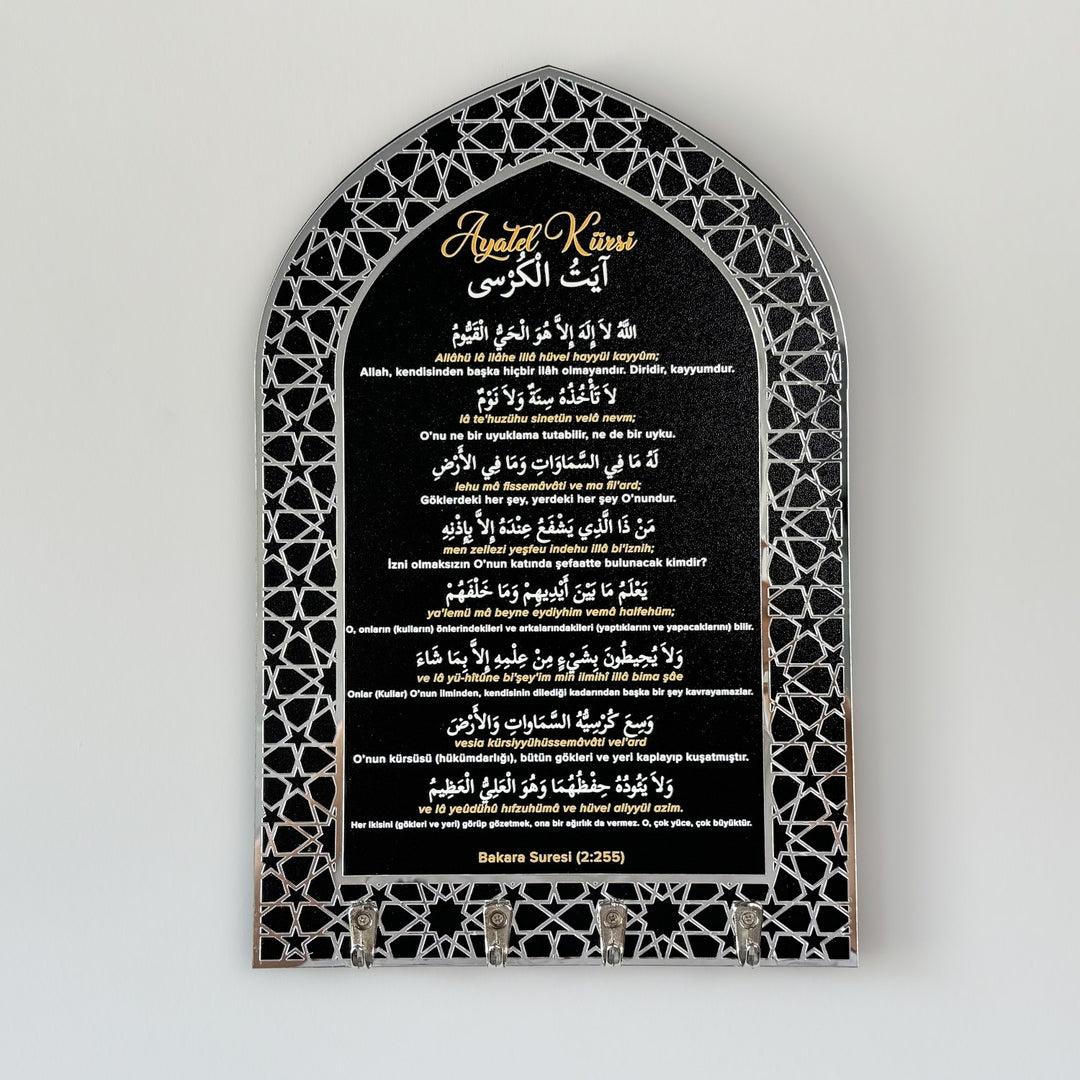 Ayatel Kürsi
آيَتُ الْكُرْسى
اللّهُ لاَ إِلَهَ إِلاَّ هُوَ الْحَيُّ الْقَيُّومُ
Allâhü lâ ilâhe illâ hüvel hayyül kayyûm;
Allah, kendisinden başka hiçbir ilâh olmayandır. Diridir, kayyumdur.
لاَ تَأْخُذُهُ سِنَةٌ وَلاَ نَوْمٌ
lâ te'huzühu sinetün velâ nevm;
O'nu ne bir uyuklama tutabilir, ne de bir uyku.
لَهُ مَا فِي السَّمَاوَاتِ وَمَا فِي الأَرْضِ
lehu mâ fissemâvâti ve ma fil'ard;
Göklerdeki her şey, yerdeki her şey O'nundur.
مَنْ ذَا الَّذِي يَشْفَعُ عِنْدَهُ إِلاَّ بِإِذْنِهِ
men zellezi yeşfeu indehu illâ bi'iznih;
İzni olmaksızın O'nun katında şefaatte bulunacak kimdir?
يَعْلَمُ مَا بَيْنَ أَيْدِيهِمْ وَمَا خَلْفَهُمْ
ya'lemü mâ beyne eydiyhim vemâ halfehüm;
O, onların (kulların) önlerindekileri ve arkalarındakileri (yaptıklarını ve yapacaklarını) bilir.
وَلاَ يُحِيطُونَ بِشَيْءٍ مِنْ عِلْمِهِ إِلاَّ بِمَا شَاءَ
ve lâ yü-hîtûne bi'şey'im min ilmihî illâ bima şâe
Onlar (Kullar) O'nun ilminden, kendisinin dilediği kadarından başka bir şey kavrayamazlar.
وَسِعَ كُرْسِيُّهُ السَّمَاوَاتِ وَالأَرْضَ
vesia kürsiyyühüssemâvâti vel'ard
O'nun kürsüsü (hükümdarlığı), bütün gökleri ve yeri kaplayıp kuşatmıştır.
وَلاَ يَئُودُهُ حِفْظُهُمَا وَهُوَ الْعَلِيُّ الْعَظِيمُ
ve lâ yeûdühû hıfzuhümâ ve hüvel aliyyül azim.
Her ikisini (gökleri ve yeri) görüp gözetmek, ona bir ağırlık da vermez. O, çok yüce, çok büyüktür.
Bakara Suresi (2:255)